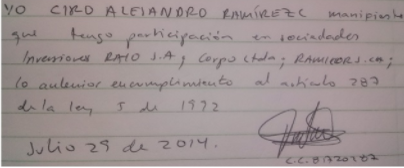 YO CIRO ALEJANDRO RAMÍREZ C manifiesto
que tengo participación en sociedades
Inversiones RAIO S.A; Corpo Ltda; RAMICOR S.CA;
lo anterior en cumplimiento al artículo 287
de la ley 5 de 1992
Julio 29 de 2014.
C.C. 81720187